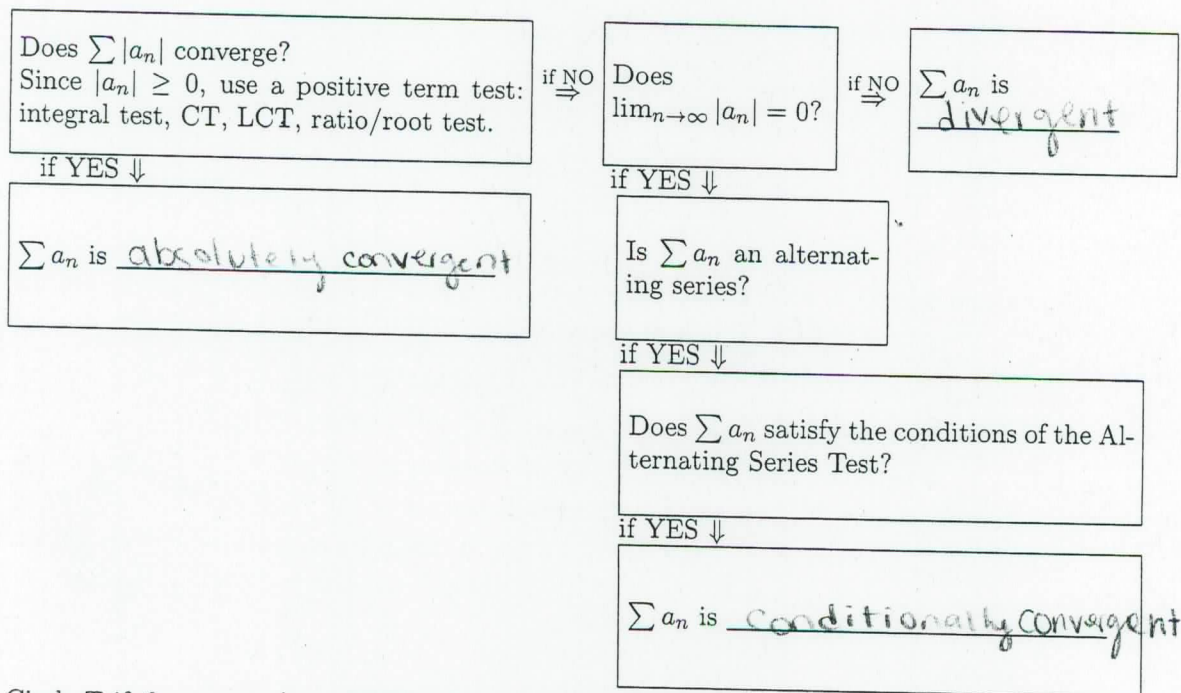 Does ∑ |aₙ| converge?
Since |aₙ| ≥ 0, use a positive term test:
integral test, CT, LCT, ratio/root test.
if NO ⇒
Does
limₙ→∞ |aₙ| = 0?
if NO ⇒
∑ aₙ is
divergent
if YES ⇓
∑ aₙ is absolutely convergent
if YES ⇓
Is ∑ aₙ an alternat-
ing series?
if YES ⇓
Does ∑ aₙ satisfy the conditions of the Al-
ternating Series Test?
if YES ⇓
∑ aₙ is conditionally convergent